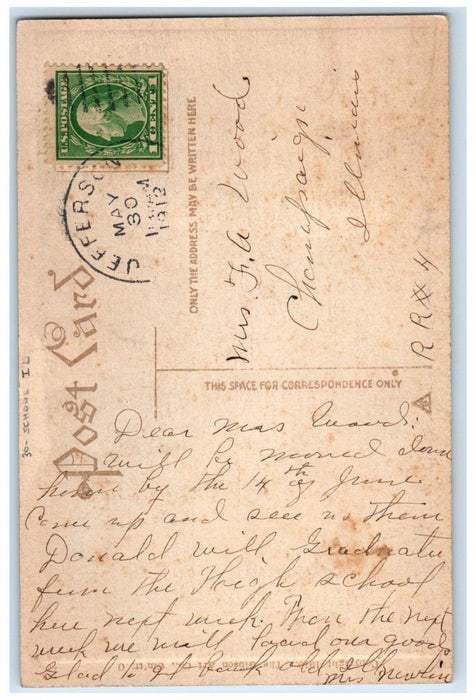 U.S. POSTAGE
1 CENT 1
JEFFERSON
MAY
30
1912
Post Card
ONLY THE ADDRESS MAY BE WRITTEN HERE
Mrs. F. A. Wood
Champaign
Illinois
RR# 4
THIS SPACE FOR CORRESPONDENCE ONLY
30- SCHOOL IL
Dear Mrs Wood:
will be moved down
home by the 14th of June
Come up and see us then
Donald will Graduate
from the High School
here next week. Then the next
week we will load our goods
Glad to get back
Mrs Newlin
The Gibson Art Co.,